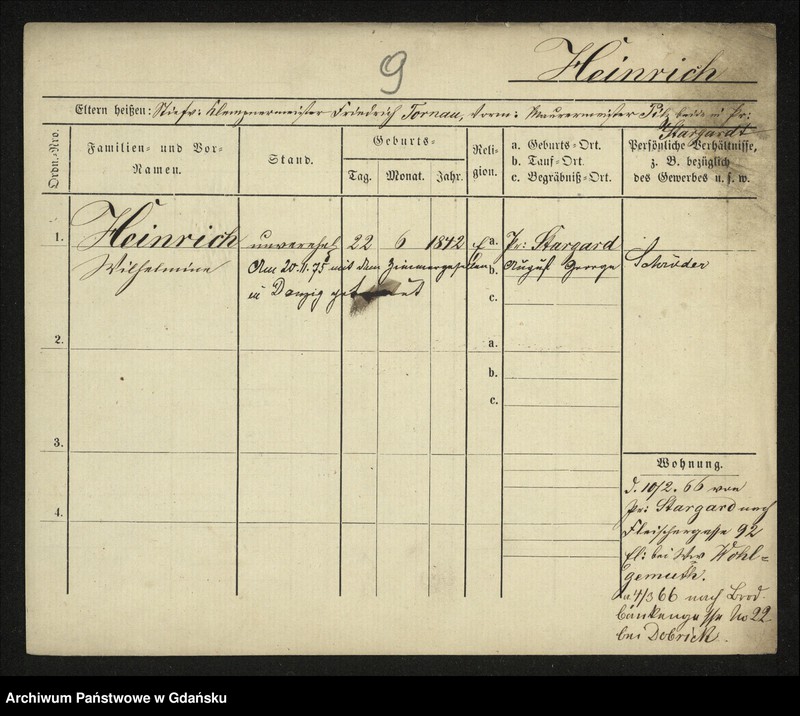 9
Heinrich
Eltern heißen: Stiefv: Klempnermeister Friedrich Tornau, Vorm: Maurermeister beide in Pr: Stargardt
Ordn.-Nro.
Familien- und Vor-Namen.
Stand.
Geburts-
Tag. Monat. Jahr.
Reli-gion.
a. Geburts-Ort.
b. Tauf-Ort.
c. Begräbniß-Ort.
Persönliche Verhältnisse,
z. B. bezüglich
des Gewerbes u. s. w.
1. Heinrich unverehel. 22 6 1842 a. Pr: Stargard
Wilhelmine Am 20.11.75 mit dem Zimmergesellen b. August George Schröder
in Danzig getraut c.
2. a.
b.
c.
3.
4.
Wohnung.
d. 10/2. 66 von
Pr: Stargard nach
Fleischergasse 92
bei Wwe Wohl=
gemuth.
4/3 66 nach Brod-
bänkengasse No 22
bei Dobrick.
Archiwum Państwowe w Gdańsku